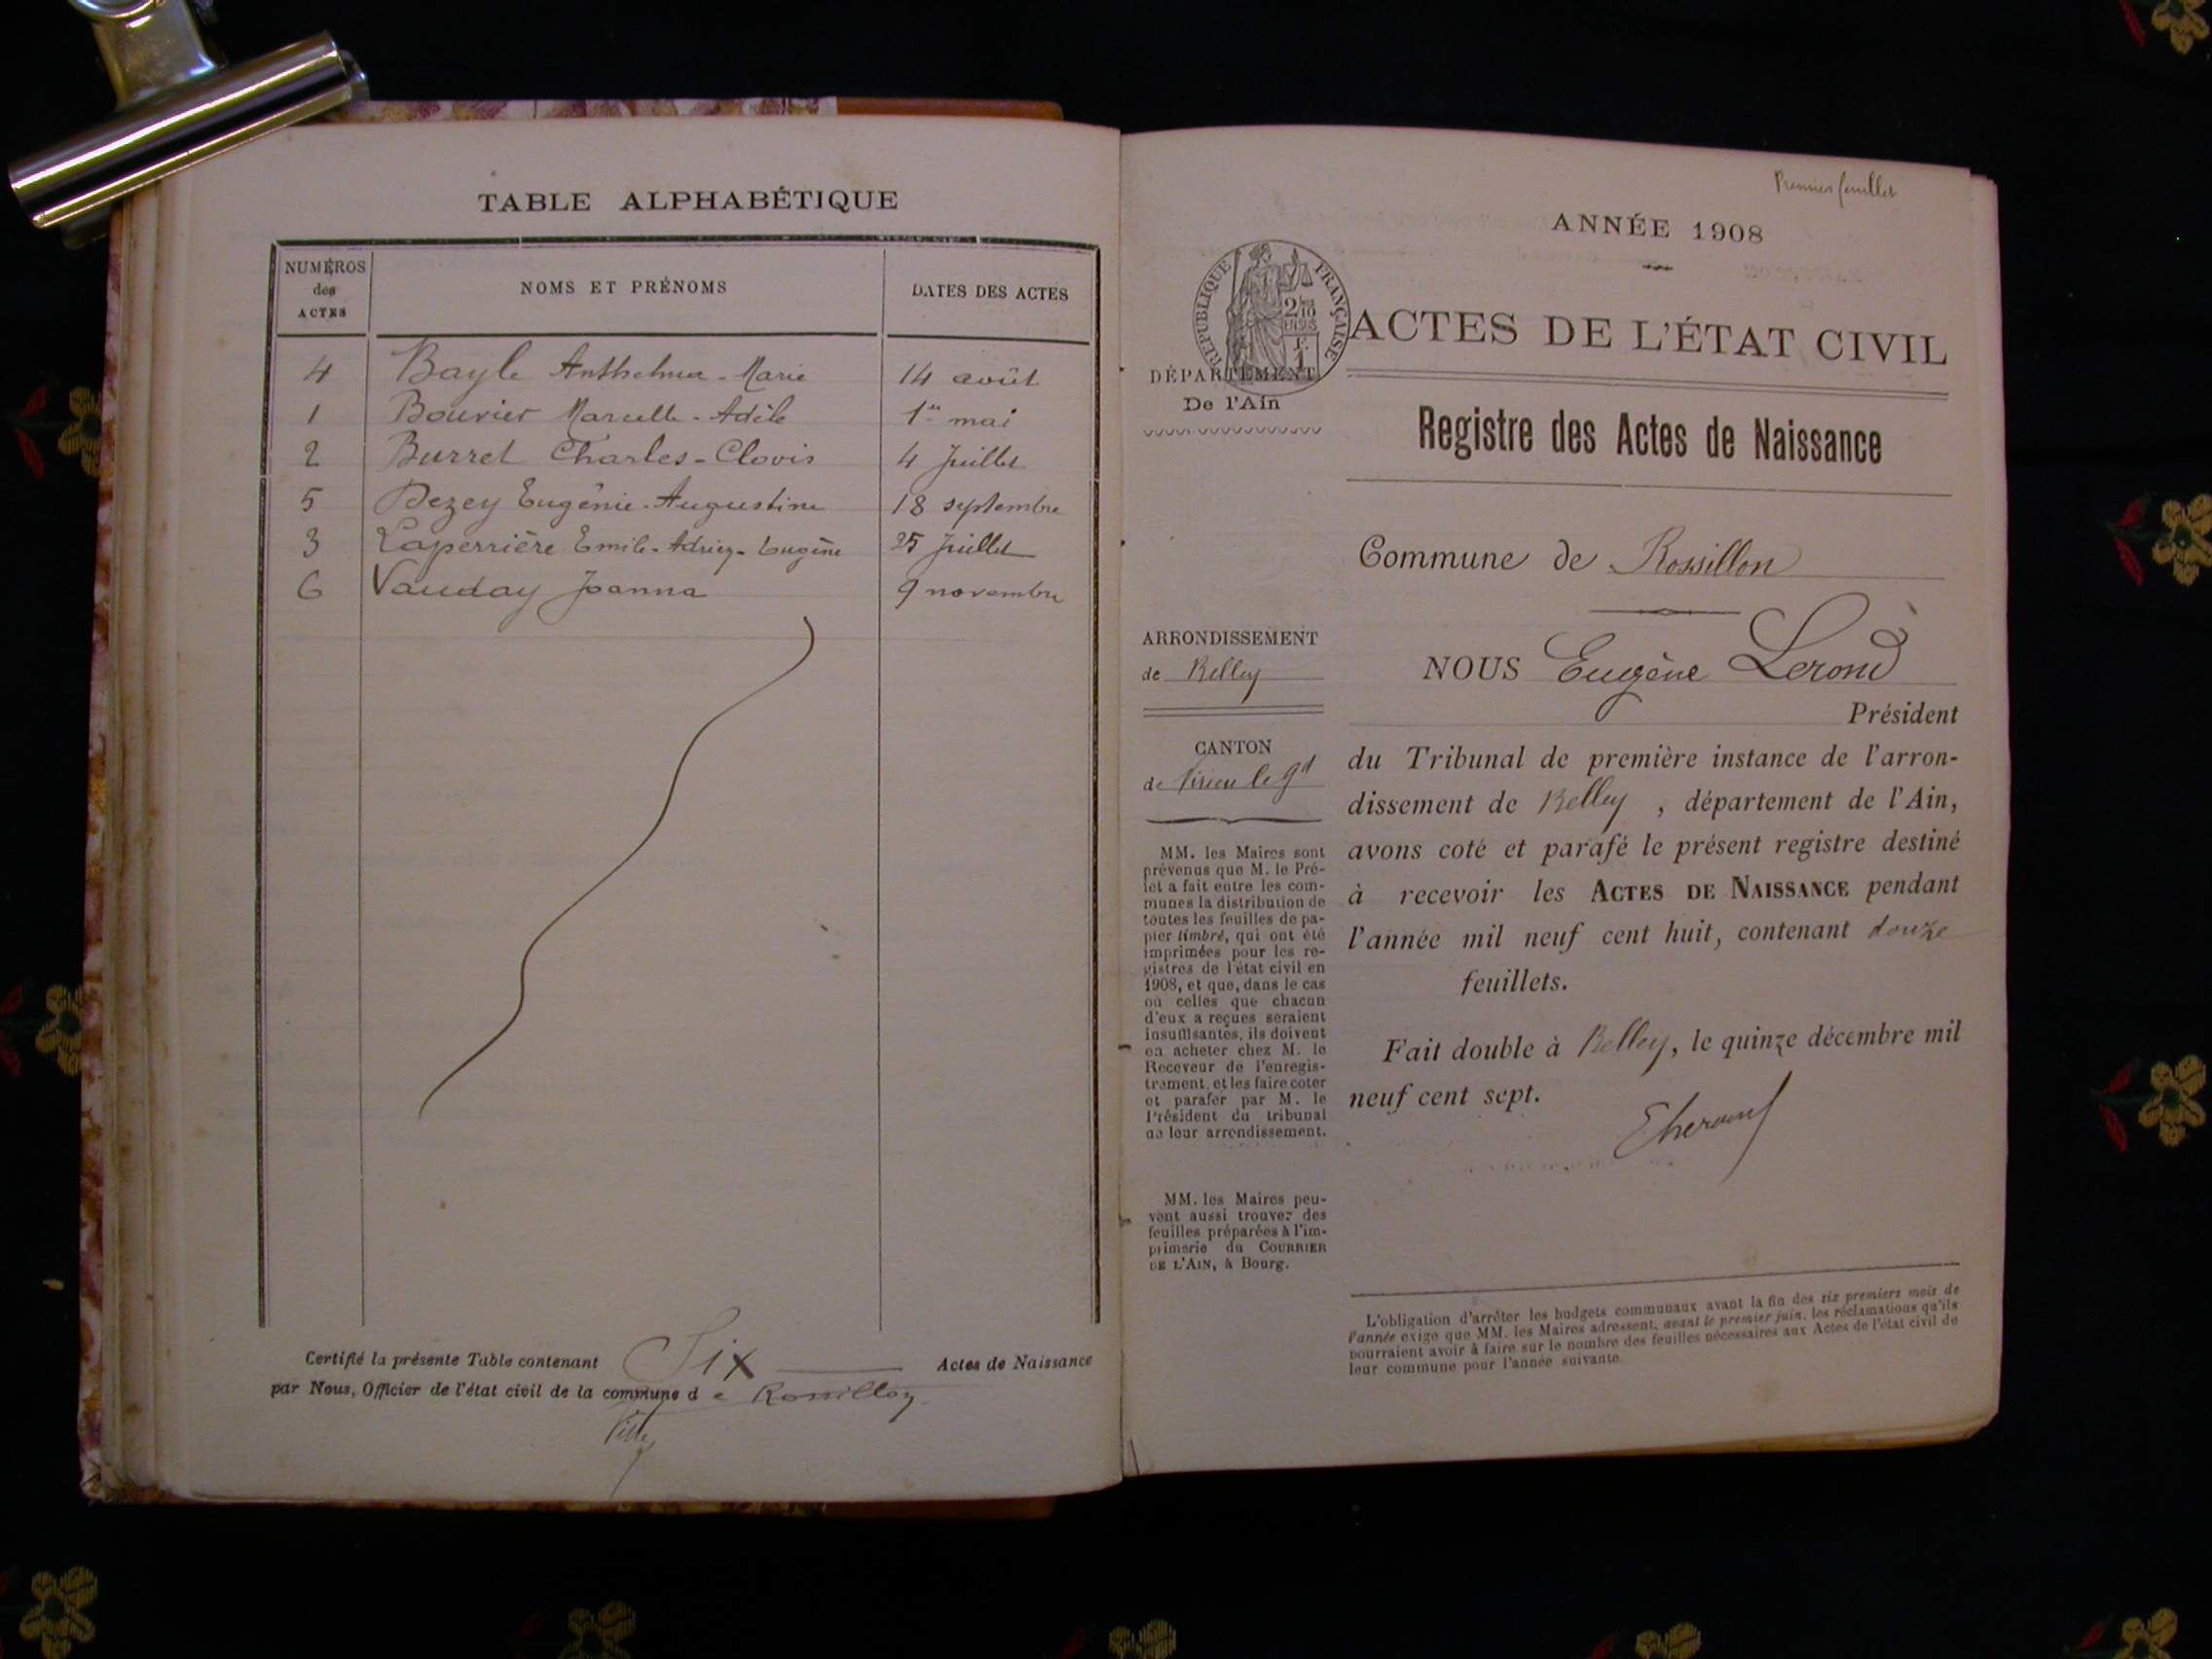 TABLE ALPHABÉTIQUE
NUMÉROS des ACTES
NOMS ET PRÉNOMS
DATES DES ACTES
4 Bayle Anthelma-Marie 14 août
1 Bouvier Marcelle-Adèle 1er mai
2 Burret Charles-Clovis 4 Juillet
5 Dezey Eugénie-Augustine 18 septembre
3 Laperrière Emile-Adrien-Eugène 25 Juillet
6 Vauday Joanna 9 novembre
Certifié la présente Table contenant Six Actes de Naissance
par Nous, Officier de l'état civil de la commune d e Rossillon
Premier feuillet
ANNÉE 1908
RÉPUBLIQUE FRANÇAISE
ACTES DE L'ÉTAT CIVIL
DÉPARTEMENT
De l'Ain
Registre des Actes de Naissance
Commune de Rossillon
ARRONDISSEMENT
de Belley
CANTON
de Virieu le Gd
MM. les Maires sont
prévenus que M. le Pré-
fet a fait entre les com-
munes la distribution de
toutes les feuilles de pa-
pier timbré, qui ont été
imprimées pour les re-
gistres de l'état civil en
1908, et que, dans le cas
où celles que chacun
d'eux a reçues seraient
insuffisantes, ils doivent
en acheter chez M. le
Receveur de l'enregis-
trement, et les faire coter
et parafer par M. le
Président du tribunal
de leur arrondissement.
MM. les Maires peu-
vent aussi trouver des
feuilles préparées à l'im-
primerie du COURRIER
DE L'AIN, à Bourg.
NOUS Eugène Lerond
Président
du Tribunal de première instance de l'arron-
dissement de Belley , département de l'Ain,
avons coté et parafé le présent registre destiné
à recevoir les ACTES DE NAISSANCE pendant
l'année mil neuf cent huit, contenant douze
feuillets.
Fait double à Belley, le quinze décembre mil
neuf cent sept.
L'obligation d'arrêter les budgets communaux avant la fin des six premiers mois de
l'année exige que MM. les Maires adressent, avant le premier juin, les réclamations qu'ils
pourraient avoir à faire sur le nombre des feuilles nécessaires aux Actes de l'état civil de
leur commune pour l'année suivante.